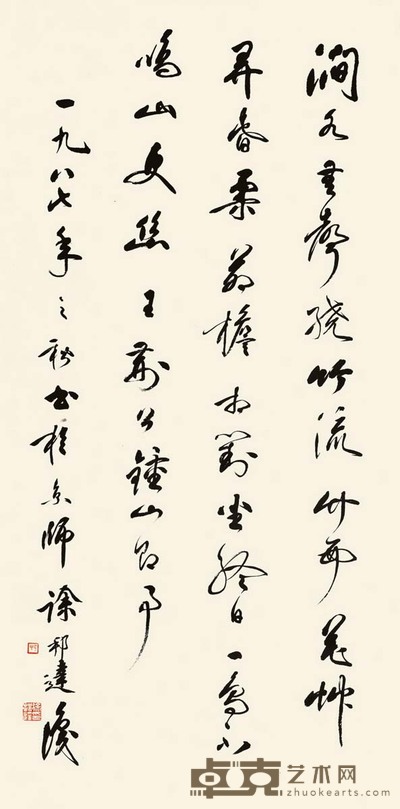 澗水無聲繞竹流竹西花艸
弄春柔茅檐相對坐終日一鳥不
鳴山更幽 王荆公鍾山即事
一九八七年之秋書於京師 徐邦達識
卓克艺术网
zhuokearts.com